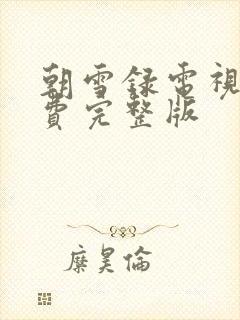 朝雪録電視
費完整版
糜昊倫